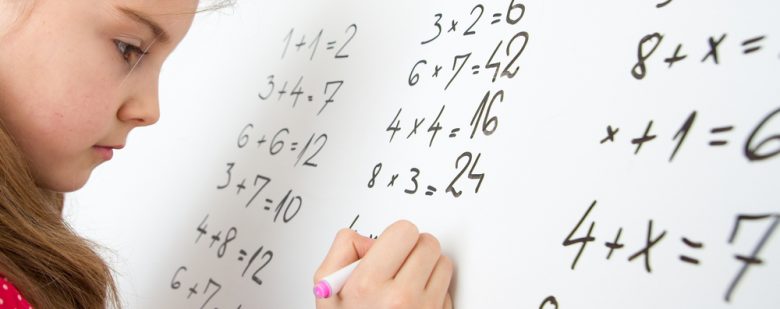 1+1=2
3+4=7
6+6=12
3+7=10
4+8=12
6+7=
3×2=6
6×7=42
4×4=16
8×3=24
8+x=
x+1=6
4+x=7